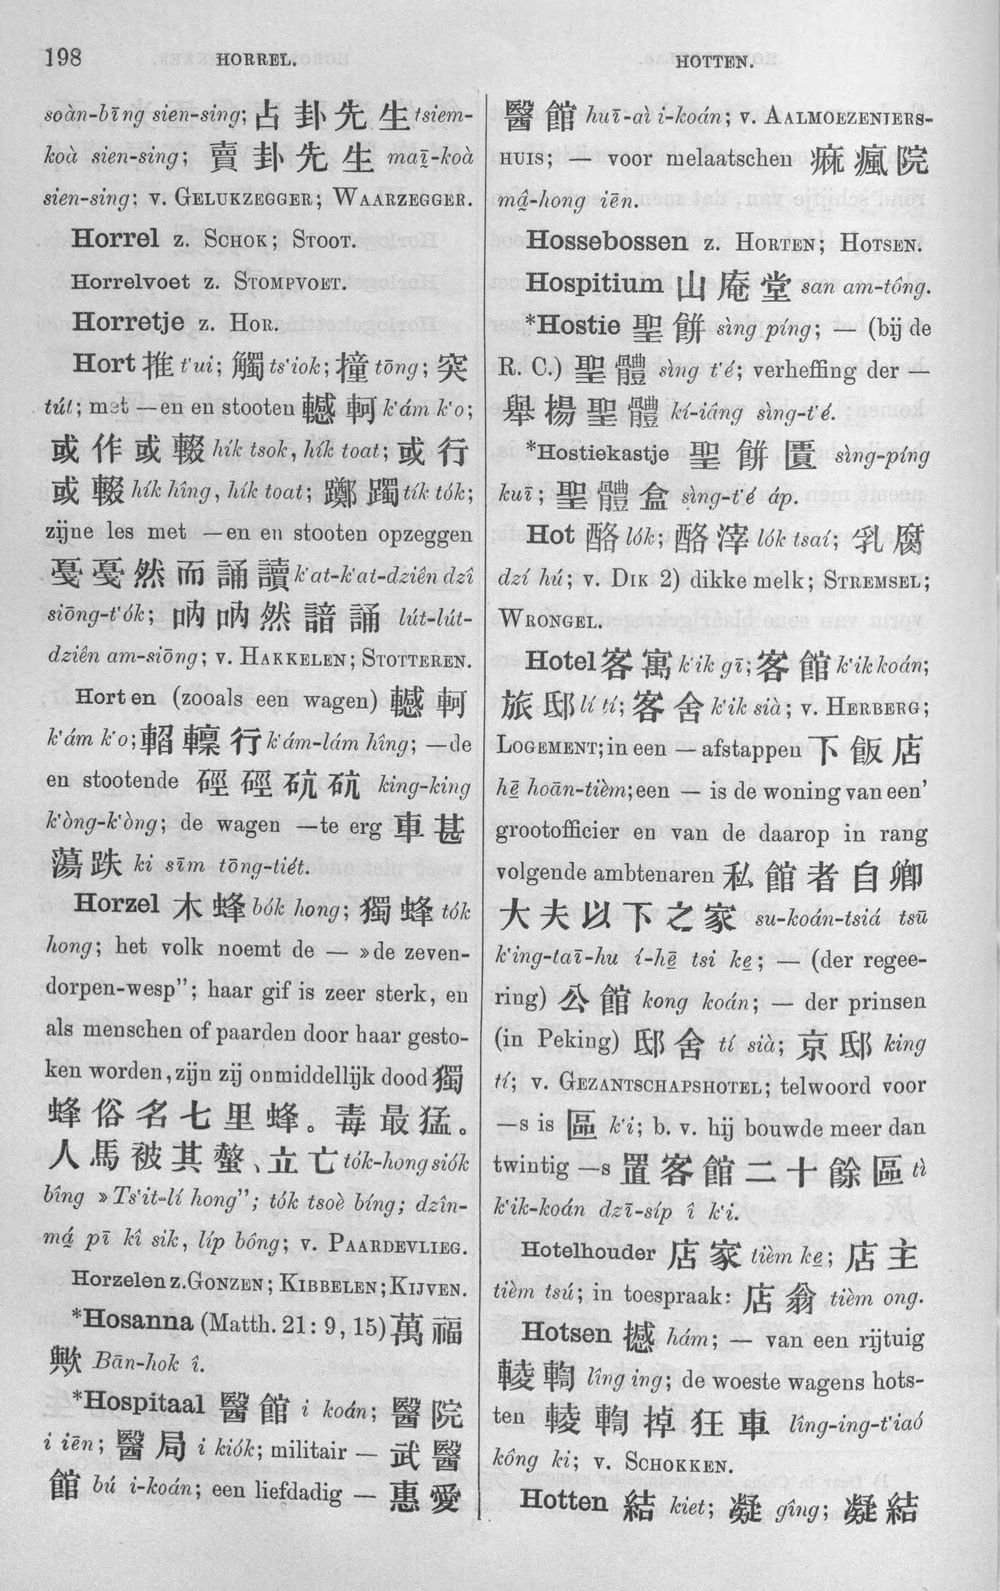 198
HORREL.
HOTTEN.
soàn-bīng sien-sing; 占卦先生 tsiem-
koà sien-sing; 賣卦先生 maī-koà
sien-sing; v. GELUKZEGGER; WAARZEGGER.
Horrel z. SCHOK; STOOT.
Horrelvoet z. STOMPVOET.
Horretje z. HOR.
Hort 推 t‘ui; 觸 ts‘iok; 撞 tōng; 突
tút; met —en en stooten 轗軻 k‘ám k‘o;
或作或輟 hík tsok, hík toat; 或行
或輟 hík hîng, hík toat; 躑躅 tík tók;
zijne les met —en en stooten opzeggen
戞戞然而誦讀 k‘at-k‘at-dziên dzî
siōng-t‘ók; 吶吶然諳誦 lút-lút-
dziên am-siōng; v. HAKKELEN; STOTTEREN.
Horten (zooals een wagen) 轗軻
k‘ám k‘o; 轁轈行 k‘ám-lám hîng; —de
en stootende 硜硜硪硪 king-king
k‘òng-k‘òng; de wagen —te erg 車甚
蕩跌 ki sīm tōng-tiét.
Horzel 木蜂 bók hong; 獨蜂 tók
hong; het volk noemt de — »de zeven-
dorpen-wesp"; haar gif is zeer sterk, en
als menschen of paarden door haar gesto-
ken worden, zijn zij onmiddellijk dood 獨
蜂俗名七里蜂。毒最猛。
人馬被其螫、立亡 tók-hong siók
bîng »Ts‘it-lí hong"; tók tsoè bíng; dzîn-
má pī kî sik, líp bông; v. PAARDEVLIEG.
Horzelen z. GONZEN; KIBBELEN; KIJVEN.
*Hosanna (Matth. 21: 9, 15) 萬福
歟 Bān-hok î.
*Hospitaal 醫館 i koán; 醫院
i iēn; 醫局 i kiók; militair — 武醫
館 bú i-koán; een liefdadig — 惠愛
醫館 huī-aì i-koán; v. AALMOEZENIERS-
HUIS; — voor melaatschen 痳瘋院
mâ-hong iēn.
Hossebossen z. HORTEN; HOTSEN.
Hospitium 山庵堂 san am-tông.
*Hostie 聖餅 sìng píng; — (bij de
R. C.) 聖體 sìng t‘é; verheffing der —
舉揚聖體 kí-iâng sìng-t‘é.
*Hostiekastje 聖餅匱 sìng-píng
kuī; 聖體盒 sìng-t‘é áp.
Hot 酪 lók; 酪滓 lók tsaí; 乳腐
dzí hú; v. DIK 2) dikke melk; STREMSEL;
WRONGEL.
Hotel 客寓 k‘ik gī; 客館 k‘ik koán;
旅邸 lí tí; 客舍 k‘ik sià; v. HERBERG;
LOGEMENT; in een — afstappen 下飯店
hē hoān-tièm; een — is de woning van een'
grootofficier en van de daarop in rang
volgende ambtenaren 私館者自卿
大夫以下之家 su-koán-tsiá tsū
k‘ing-taī-hu í-hē tsi ke; — (der regee-
ring) 公館 kong koán; — der prinsen
(in Peking) 邸舍 tí sià; 京邸 king
tí; v. GEZANTSCHAPSHOTEL; telwoord voor
—s is 區 k‘i; b. v. hij bouwde meer dan
twintig —s 置客館二十餘區 tì
k‘ik-koán dzī-síp î k‘i.
Hotelhouder 店家 tièm ke; 店主
tièm tsú; in toespraak: 店翁 tièm ong.
Hotsen 撼 hám; — van een rijtuig
輘輷 lîng ing; de woeste wagens hots-
ten 輘輷掉狂車 lîng-ing-t‘iaó
kông ki; v. SCHOKKEN.
Hotten 結 kiet; 凝 gîng; 凝結